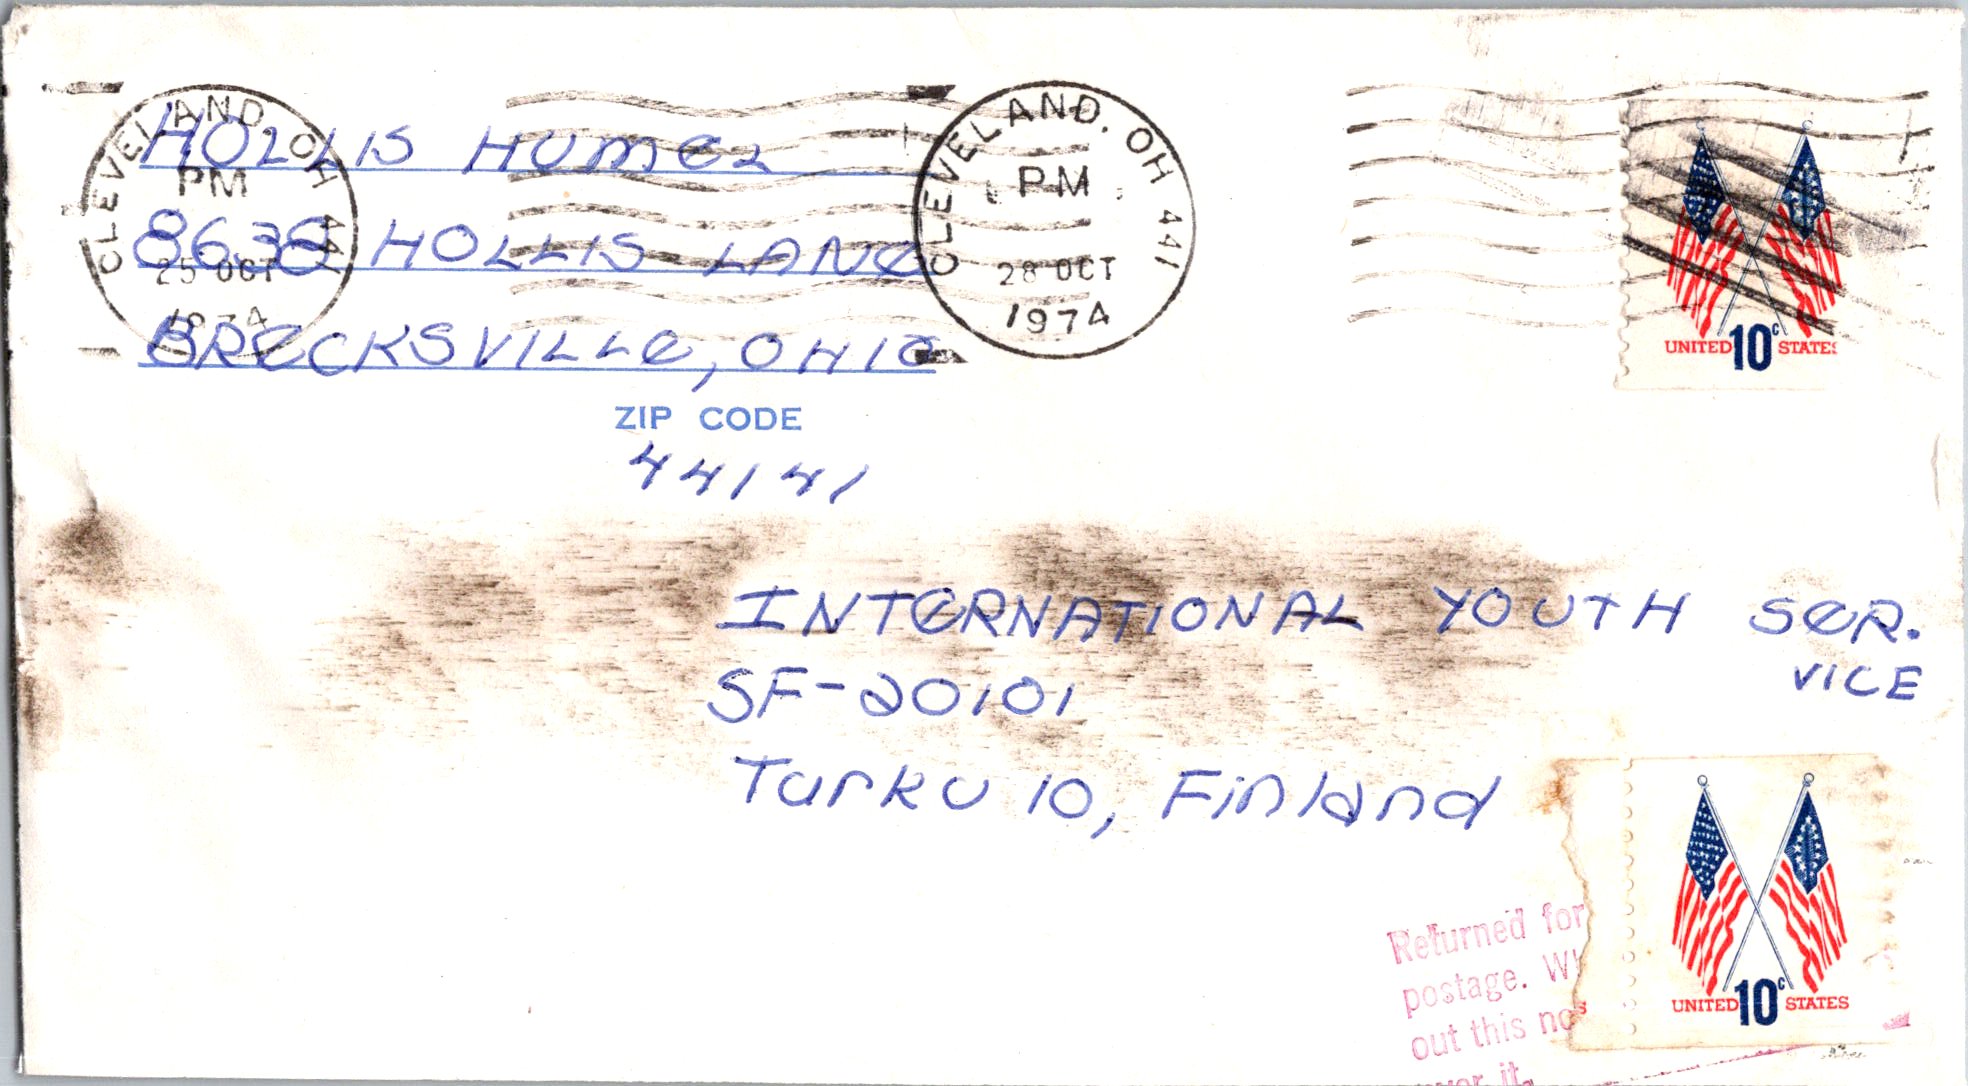 CLEVELAND, OH 441
PM
25 OCT
1974
CLEVELAND, OH 441
PM
28 OCT
1974
HOLLIS HUMEL
8638 HOLLIS LANE
BRECKSVILLE, OHIO
ZIP CODE
44141
UNITED 10c STATES
INTERNATIONAL YOUTH SER.
VICE
SF-20101
Turku 10, Finland
UNITED 10c STATES
Returned for
postage. W
out this no
over it.